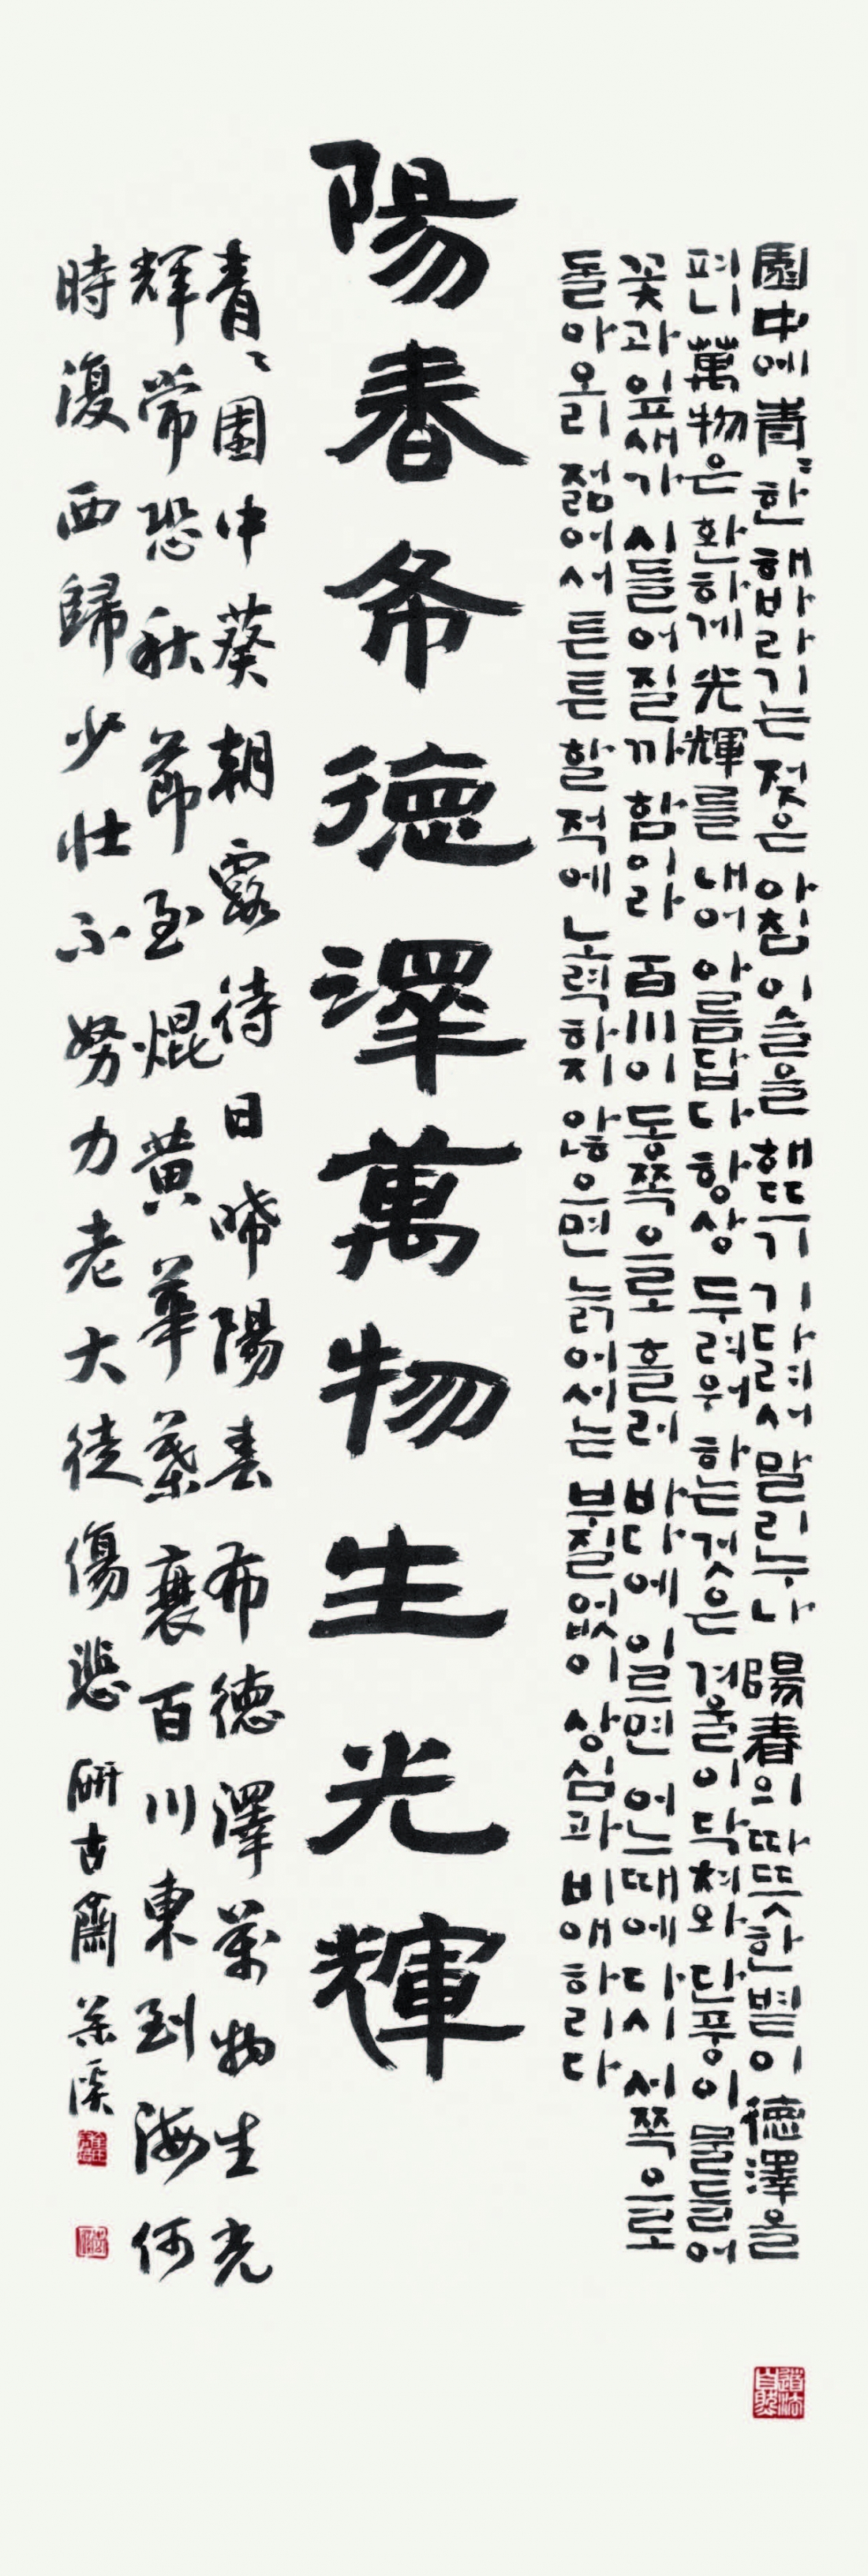 園中에 靑〻한 해바라기는 젖은 아침 이슬을 햇뜨기 기다려서 말리누나 陽春의 따뜻한 볕이 德澤을
펴니 萬物은 환하게 光輝를 내어 아름답다 항상 두려워 하는 것은 겨울이 닥쳐와 단풍이 물들어
꽃과 잎새가 시들어질까 함이라 百川이 동쪽으로 흘러 바다에 이르면 어느때에 다시 서쪽으로
돌아오리 젊어서 튼튼할 적에 노력하지 않으면 늙어서는 부질없이 상심과 비애하리다
陽春布德澤萬物生光輝
靑〻園中葵朝露待日晞陽春布德澤萬物生光
輝常恐秋節至焜黃華葉衰百川東到海何
時復西歸少壯不努力老大徒傷悲 硏古齋
道法自然